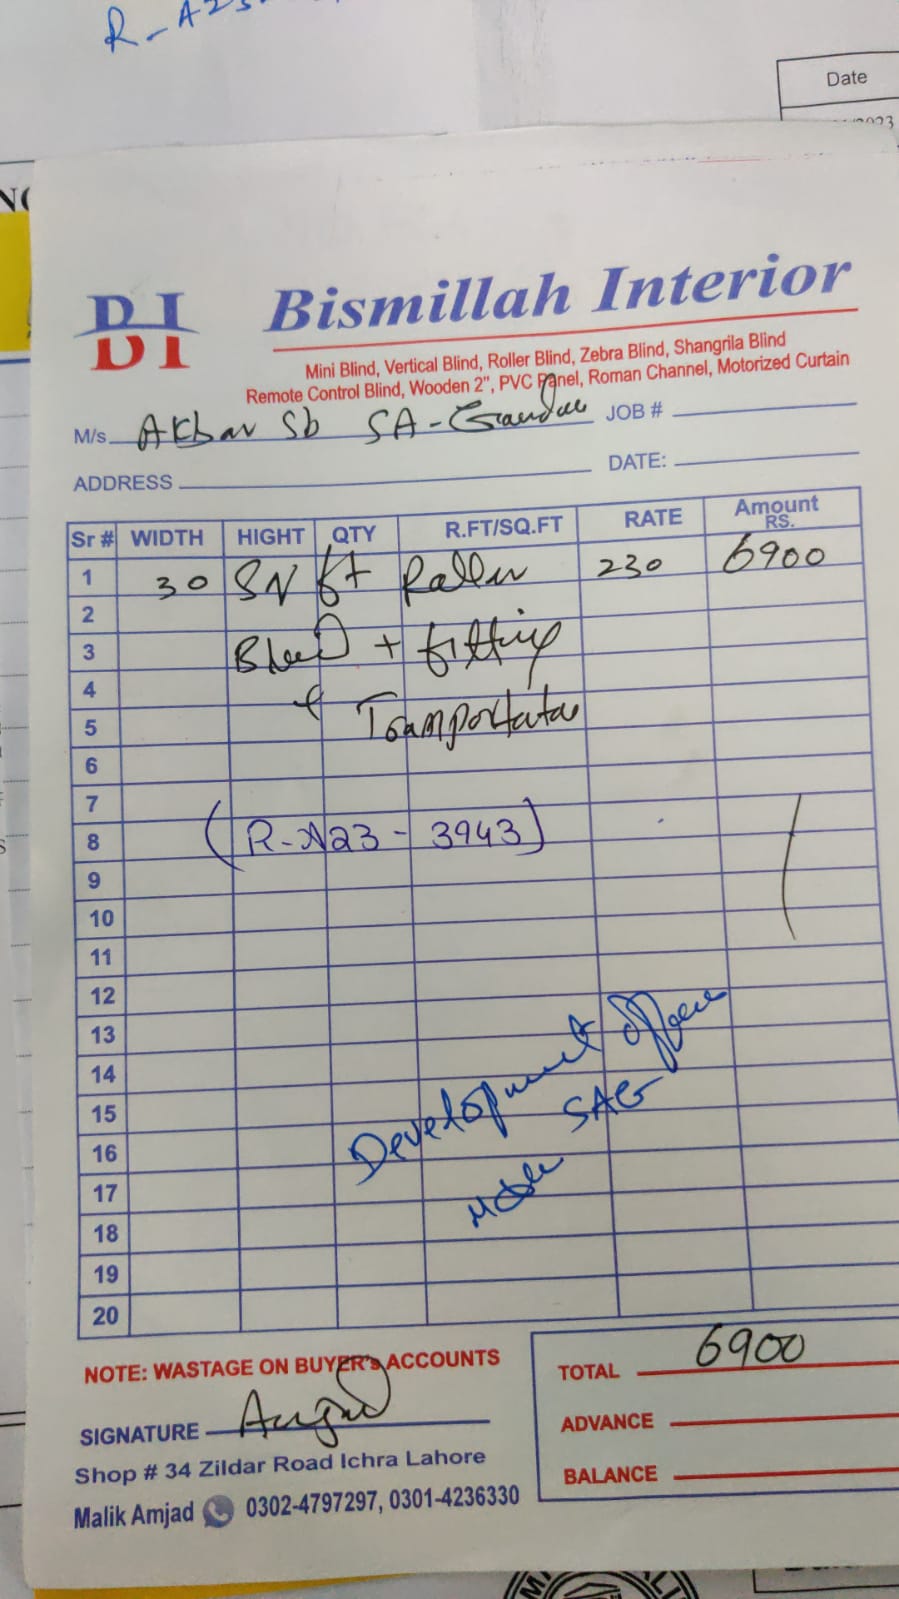 R-A23
Date
/2023
BI
Bismillah Interior
Mini Blind, Vertical Blind, Roller Blind, Zebra Blind, Shangrila Blind
Remote Control Blind, Wooden 2", PVC Panel, Roman Channel, Motorized Curtain
M/s. Akbar Sb SA-Garden JOB #
ADDRESS DATE:
Sr # WIDTH HIGHT QTY R.FT/SQ.FT RATE Amount RS.
1 30 ft Roller 230 6900
2
3 Blind + fitting
4
5 + Transportation
6
7
8 (R-A23-3943)
9
10
11
12
13 Development Office
14
15 SAG
16
17
18
19
20
NOTE: WASTAGE ON BUYER's ACCOUNTS
TOTAL 6900
SIGNATURE Amjad
ADVANCE
Shop # 34 Zildar Road Ichra Lahore
BALANCE
Malik Amjad 0302-4797297, 0301-4236330